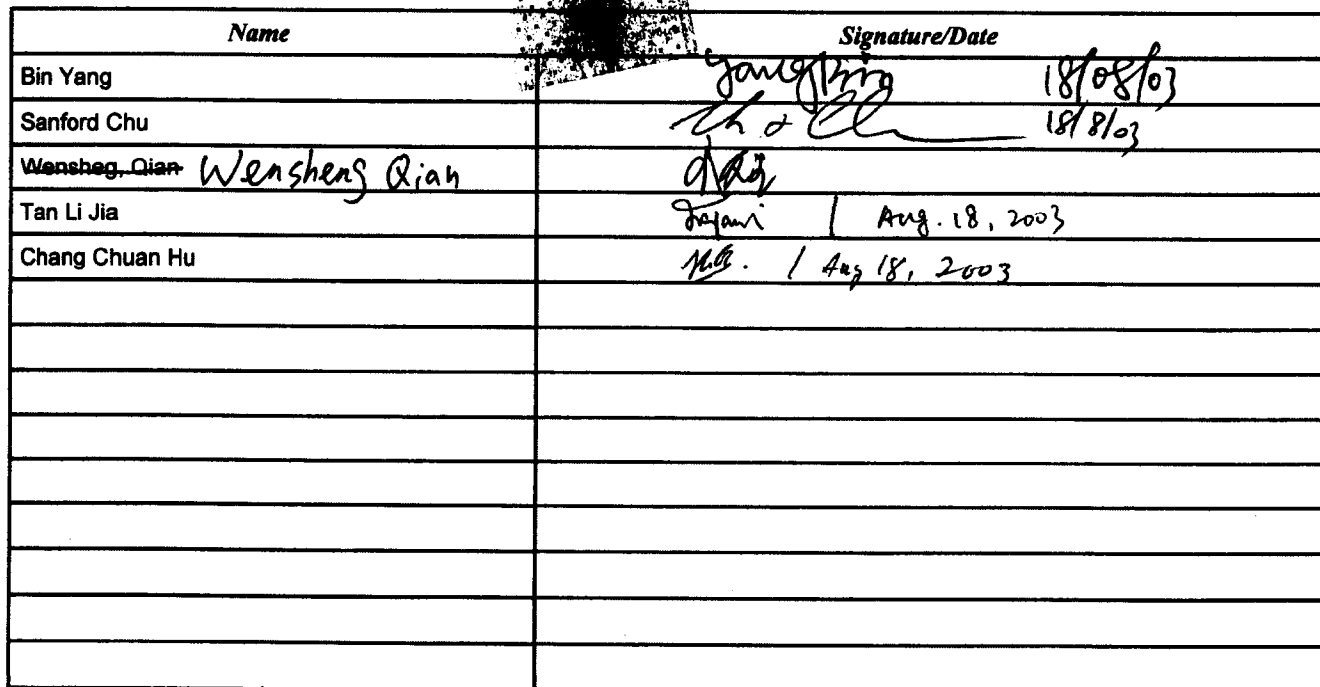 Name Signature/Date
Bin Yang Yang Bin 18/08/03
Sanford Chu 18/8/03
Wensheg, Qian Wensheng Qian
Tan Li Jia / Aug. 18, 2003
Chang Chuan Hu / Aug 18, 2003